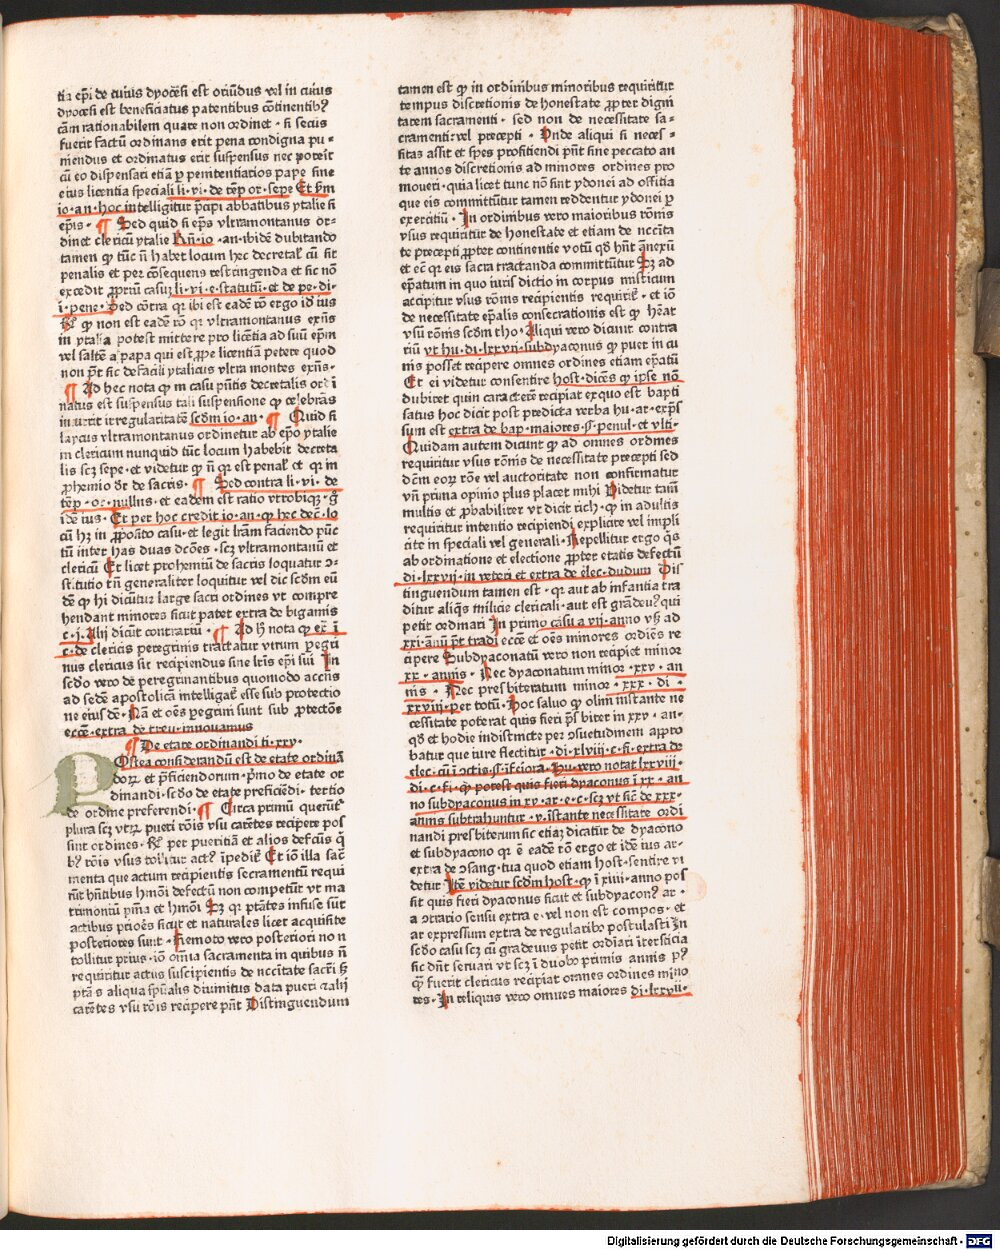 tia ep̄i de cuius dyoc̄esi est oriūdus vel in cuius
dyoc̄esi est beneficiatus patentibus cōtinentibꝰ
cām rationabilem quare non ordinet · si secus
fuerit factū ordinans erit pena condigna pu⸗
niendus et ordinatus erit suspensus nec poterit
cū eo dispensari etiā ꝑ penitentiarios pape sine
eius licentia speciali li · vi · de tēp or · sepe Et
io · an · hoc intelligitur abbatibus ytalie si
ep̄is · ¶ Sed quid si ep̄s vltramontanus or⸗
dinet clericū ytalie Rñ · io · an · ibidē dubitando
tamen ꝙ tūc ñ habet locum hec decretal̄ cū sit
penalis et per cōsequens restringenda et sic nō
excedit ꝓpriū casuȝ li · vi · e · statutū · et de pe · di ·
i · pene · Sed cōtra qr ibi est eadē rō ergo idē ius
ꝙ non est eadē rō qr vltramontanus exñs
in ytalia potest mittere pro licētia ad suū ep̄m
vel saltē a papa qui est ꝓpe licentiā petere quod
non pñt sic defacili ytalicus vltra montes exñs ·
¶ Ad hec nota ꝙ in casu pñtis decretalis ordi
natus est suspensus tali suspensione ꝙ celebrās
incurrit irregularitatē scđm io · an · ¶ Quid si
laycus vltramontanus ordinetur ab ep̄o ytalie
in clericum nunquid tūc locum habebit decreta
lis scȝ sepe · et videtur ꝙ ñ qr est penal̄ et qr in
ꝓhemio dr̄ de sacris · ¶ Sed contra li · vi · de
tēp · or · nullus · et eadem est ratio vtrobiqȝ · g̊
idē ius · Et per hoc credit io · an · ꝙ hec dec̄ · lo
cū hȝ in ꝓposito casu · et legit lr̄am faciendo pūc
tū inter has duas dc̄ones · scȝ vltramontanū et
clericū Et licet prohemiū de sacris loquatur ↄ⸗
stitutio tñ generaliter loquitur vel dic scđm eū
dē ꝙ hi dicūtur large sacri ordines vt compre
hendant minores sicut patet extra de bigamis
c · j. Alij dicūt contrariū · ¶ Ad hͦ nota ꝙ ex̄ ī
c · de clericis peregrinis tractatur vtrum ꝑegri
nus clericus sit recipiendus sine lr̄is ep̄i sui In
scđo vero de peregrinantibus quomodo acc̄ns
ad sedē apostolicā intelligat̄ esse sub protectio
ne eius dē · Nā et oēs ꝑegrini sunt sub ꝓtectōe
ecc̄e · extra de treu · innouamus
¶ De etate ordinandi ti · xxv ·
POstea considerandū est de etate ordinā
dorꝝ et ꝓficiendorum · pͥmo de etate or
dinandi · scđo de etate preficiēdi · tertio
de ordine preferendi · ¶ Circa primū querūt̄
plura scȝ vtrꝝ pueri rōis vsu carētes recipere pos
sint ordines · per pueritiā et alios defctūs q̄
bꝫ rōis vsus tollitur actꝰ īpedit̄ Et iō illa sac̄
menta que actum recipientis sacramentū requi
rūt hñtibus hmōi defectū non competūt vt ma
trimoniū pñia et hmōi Sȝ qr ptātes infuse sūt
actibus priores sicut et naturales licet acquisite
posteriores sunt · Remoto vero posteriori no n
tollitur prius · iō omia sacramenta in quibus ñ
requiritur actus suscipientis de nccītate sacri ħ
ptās aliqua spūalis diuinitus data pueri ⁊ alij
carētes vsu rōis recipere pñt Distinguendum
tamen est ꝙ in ordinibus minoribus requiritur
tempus discretionis de honestate ꝓpter digni
tatem sacramenti · sed non de necessitate sa⸗
cramenti vel precepti · Unde aliqui si neces⸗
sitas assit et spes proficiendi pñt sine peccato an
te annos discretionis ad minores ordines pro
moueri · quia licet tunc nō sint ydonei ad offitia
que eis committūtur tamen reddentur ydonei ꝑ
exercitiū · In ordinibus vero maioribus rōnis
vsus requiritur de honestate et etiam de nccīta
te precepti ꝓpter continentie votū qđ hñt ānexū
et ec̄ qr eis sacra tractanda committūtur Sȝ ad
ep̄atum in quo iuris dictio in corpus misticum
accipitur vsus rōnis recipientis requirit̄ · et iō
de necessitate ep̄alis consecrationis est ꝙ hēat
vsū rōnis scđm tho · Aliqui vero dicunt contra
riū vt hu · di · lxxvii · subdyaconus ꝙ puer in cu
nis posset recipere omnes ordines etiam ep̄atū
Et ei videtur consentire host · dicēs ꝙ ipse nō
dubitet quin caracterē recipiat exquo est bapti
satus hoc dicit post predicta verba hu · ar · exp̄s
sum est extra de bap · maiores · §. penul · et vlti ·
Quidam autem dicunt ꝙ ad omnes ordines
requiritur vsus rōnis de necessitate precepti sed
dc̄m eorꝝ rōe vel auctoritate non confirmatur
vñ prima opinio plus placet mihi Videtur tamē
multis et ꝓbabiliter vt dicit rich · ꝙ in adultis
requiritur intentio recipiendi explicite vel impli
cite in speciali vel generali · Repellitur ergo q̄s
ab ordinatione et electione ꝓpter etatis defectū
di · lxxvij · in veteri et extra de elec · dudum Dis
tinguendum tamen est · qr aut ab infantia tra
ditur aliqs milicie clericali · aut est grādeuꝰ qui
petit ordinari In primo casu a vij · anno vsqȝ ad
xxi · annū pt̄ tradi ecc̄e et oēs minores ordiēs re
cipere Subdyaconatū vero non recipiet minor
xx · annis · Nec dyaconatum minor · xxv · an
nis · Nec presbiteratum minor · xxx · di ·
xxviij · per totū · Hoc saluo ꝙ olim instante ne
cessitate poterat quis fieri p̄sbiter in xxv · an ·
qđ et hodie indistincte per ↄsuetudinem appro
batur que iure flectitur · di · xlviii · c · fi · extra de
elec · cū ī ↄctis · §. īferiora · Hu · vero notat lxxviii ·
di · c · fi · ꝙ potest quis fieri dyaconus ī xx · an
no subdyaconus in xv · ar · e · c · scȝ vt sic̄ de xxx ·
annis subtrahuntur · v · īstante necessitate ordi
nandi presbiterum sic etiaȝ dicatur de dyacono
et subdyacono qr ē eadē rō ergo et idē ius ar ·
extra de ↄsang · tua quod etiam host · sentire vi
detur Itē videtur scđm host · ꝙ ī xiiii · anno pos
sit quis fieri dyaconus sicut et subdyaconꝰ ar ·
a ↄtrario sensu extra e · vel non est compos · et
ar expressum extra de regularibꝰ postulasti In
scđo casu scȝ cū grādeuus petit ordīari īterstitia
sic dñt seruari vt scȝ ī duobꝰ primis annis pꝰ
ꝙ fuerit clericus recipiat omnes ordines mino
res · In reliquis vero omnes maiores di · lxxvii ·
Digitalisierung gefördert durch die Deutsche Forschungsgemeinschaft - DFG